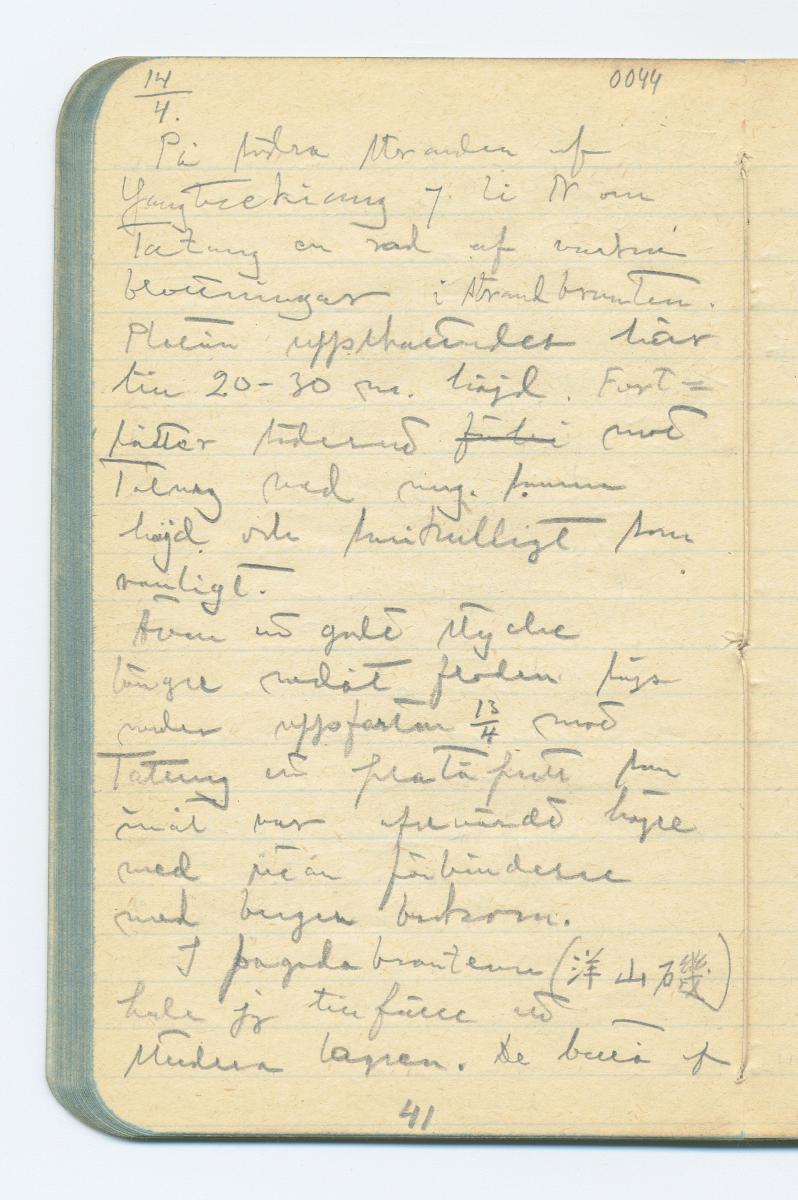 14/4.
0044
På södra stranden af
Yangtsekiang 7 li N om
Tatung en rad af vackra
blottningar i strandbranten.
Platån uppskattades här
till 20-30 m. höjd. Fort=
sätter söderut mot
Tatung med ung. samma
höjd och småkulligt som
vanligt.
Även ett godt stycke
längre nedåt floden sågs
under uppfarten 13/4 mot
Tatung ett platåparti som
inåt var afsevärdt högre
med nästan förbindelse
med bergen bakom.
I pagodabranten (洋山磯)
hade jag tillfälle att
studera lagren. De bestå af
41